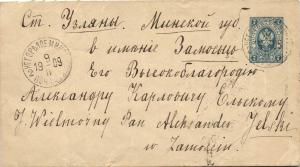 Ст. Узляны. Минской губ.
в имение Замосць
Его Высокоблагородию
Александру Карловичу Ельскому
J. Wielmożny Pan Aleksander Jelski
w Zamościu
9
1909